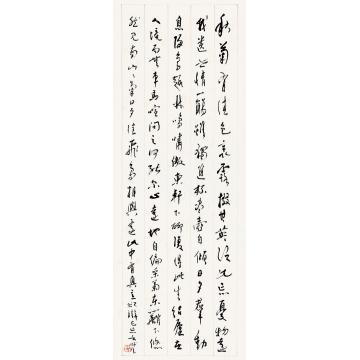 秋菊有佳色裛露掇其英泛此忘憂物遠
我遺世情一觴雖獨進杯盡壺自傾日入群動
息歸鳥趨林鳴嘯傲東軒下聊復得此生結廬在
人境而無車馬喧問君何能尔心遠地自偏采菊東籬下悠
然見南山山氣日夕佳飛鳥相與還此中有真意欲辨已忘言